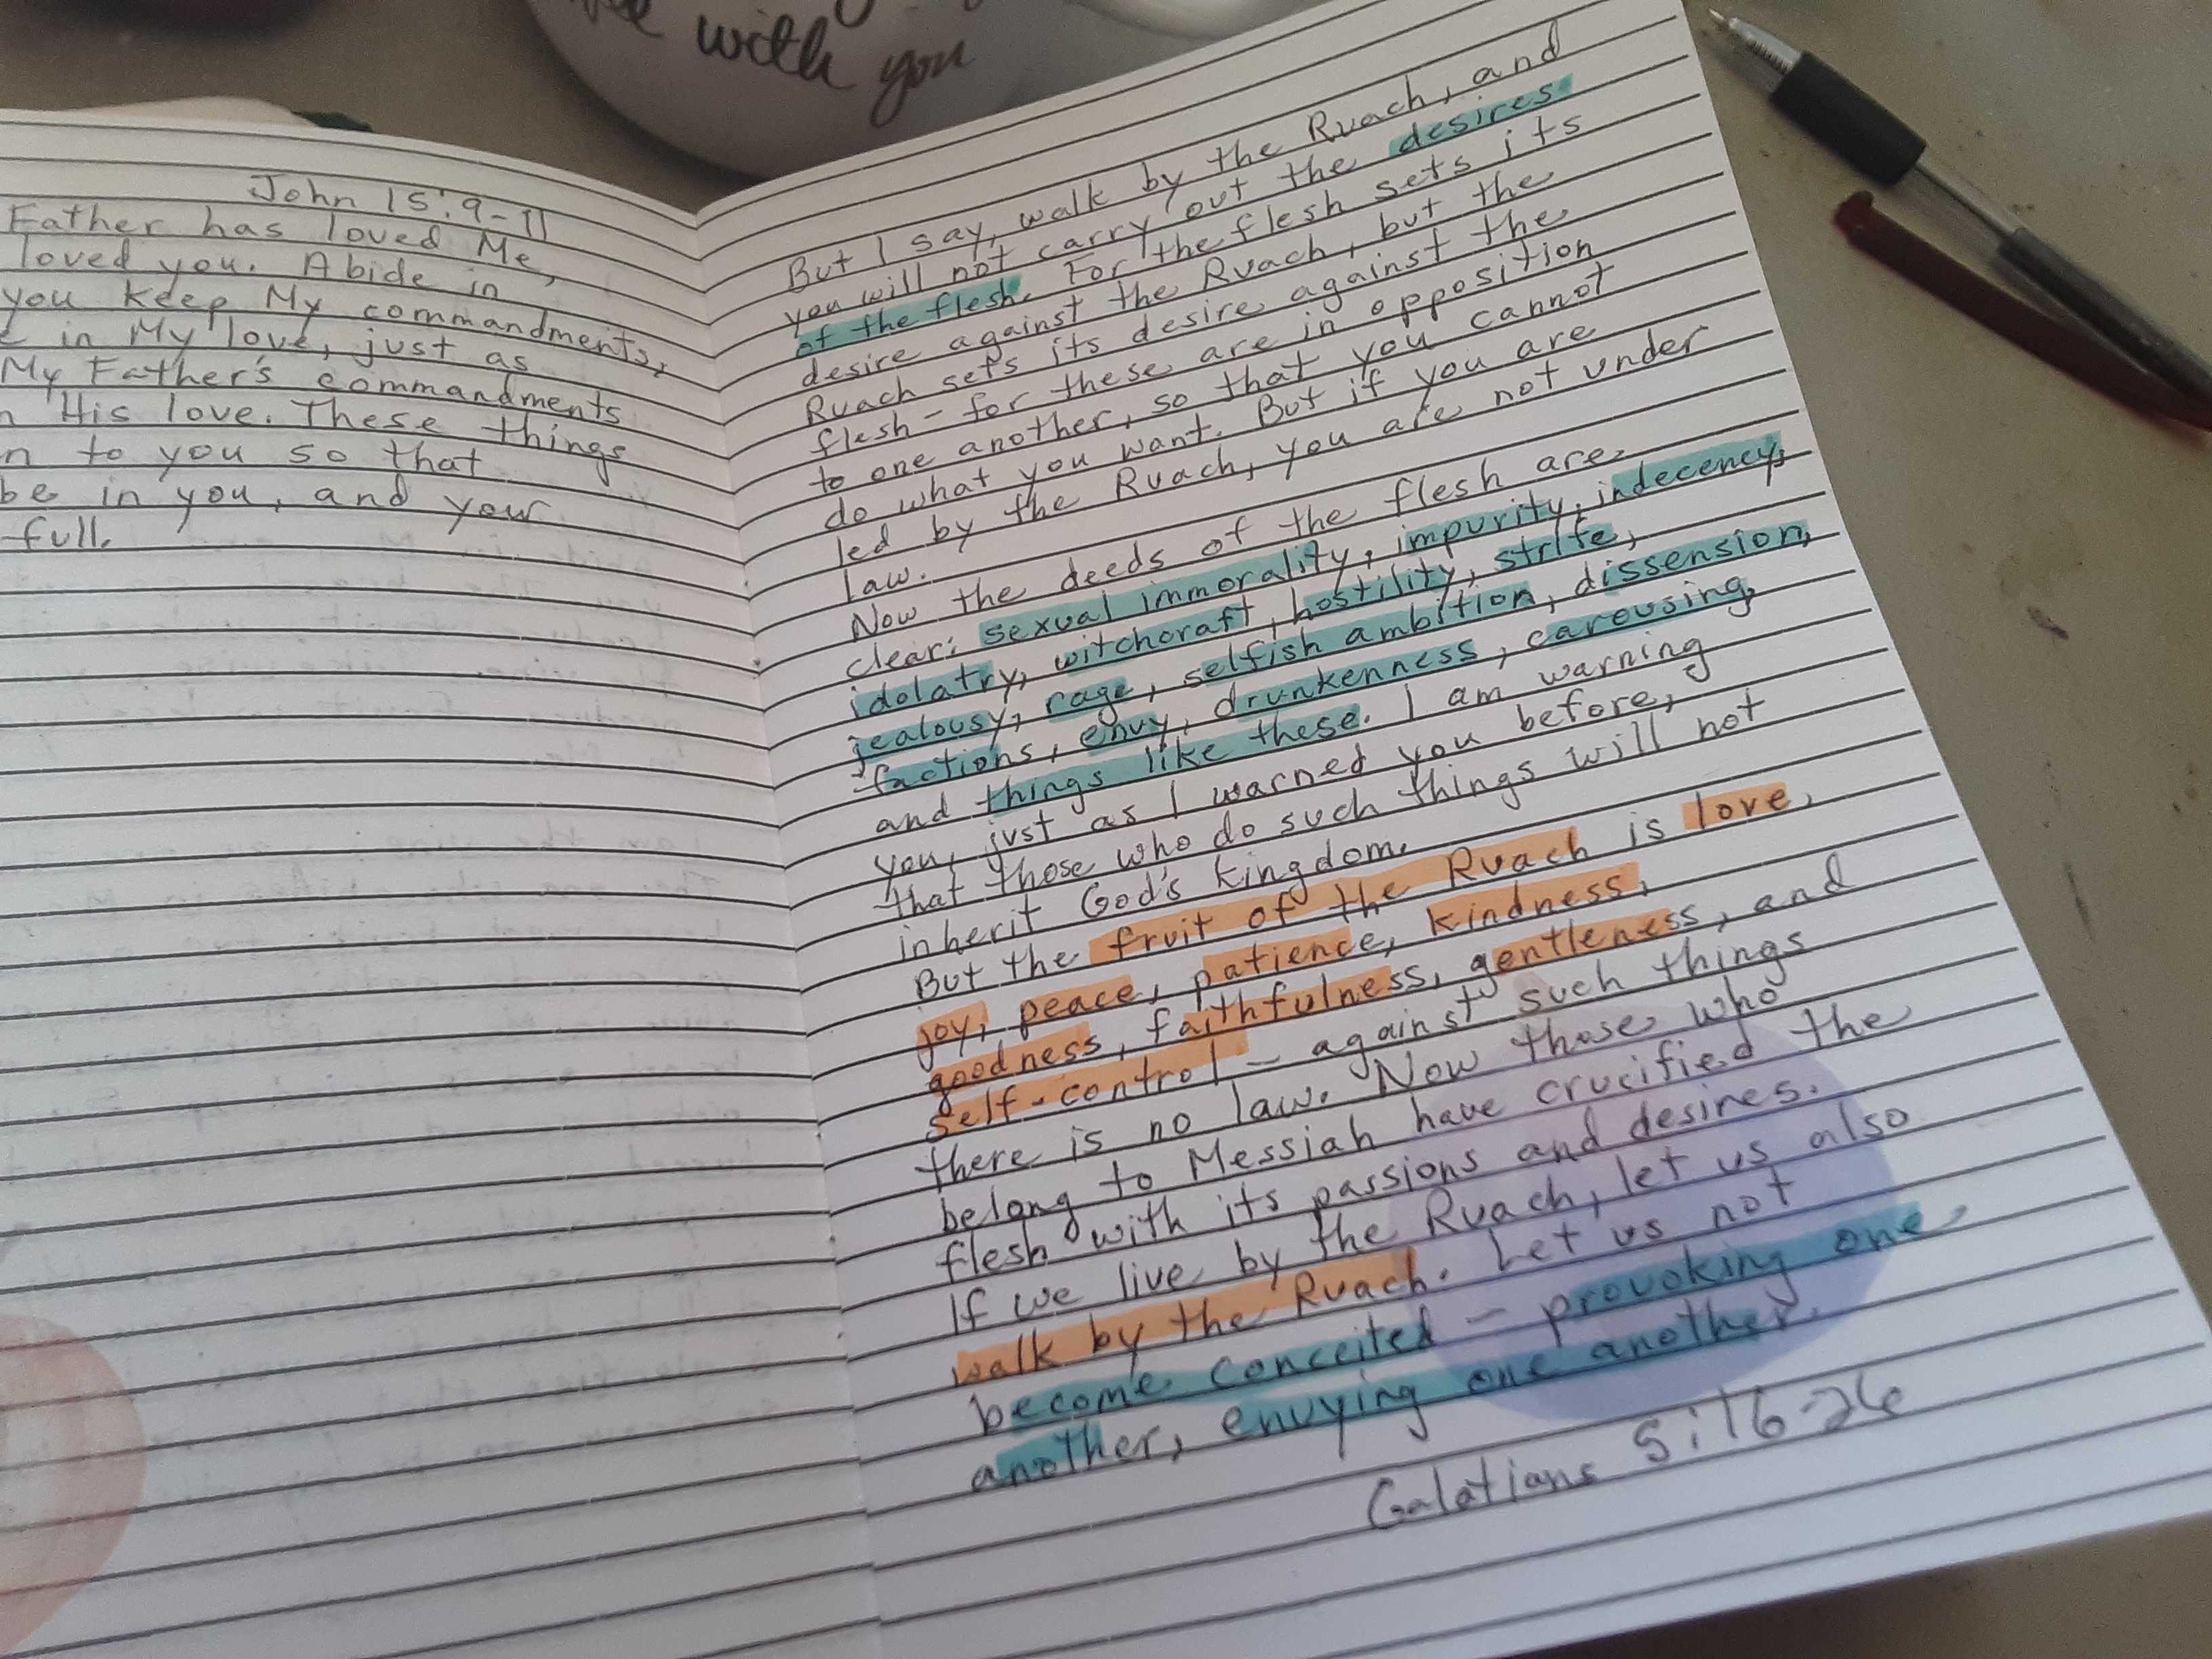 with you
John 15:9-11
Father has loved Me,
loved you. Abide in
you keep My commandments,
in My love, just as
My Father's commandments
His love. These things
to you so that
be in you, and your
full.
But I say, walk by the Ruach, and
you will not carry out the desires
of the flesh. For the flesh sets its
desire against the Ruach, but the
Ruach sets its desire against the
flesh - for these are in opposition
to one another, so that you cannot
do what you want. But if you are
led by the Ruach, you are not under
law.
Now the deeds of the flesh are
clear: sexual immorality, impurity, indecency,
idolatry, witchcraft, hostility, strife,
jealousy, rage, selfish ambition, dissension,
factions, envy, drunkenness, carousing,
and things like these. I am warning
you, just as I warned you before,
that those who do such things will not
inherit God's kingdom.
But the fruit of the Ruach is love,
joy, peace, patience, kindness,
goodness, faithfulness, gentleness, and
self-control - against such things
there is no law. Now those who
belong to Messiah have crucified the
flesh with its passions and desires.
If we live by the Ruach, let us also
walk by the Ruach. Let us not
become conceited - provoking one
another, envying one another.
Galatians 5:16-26